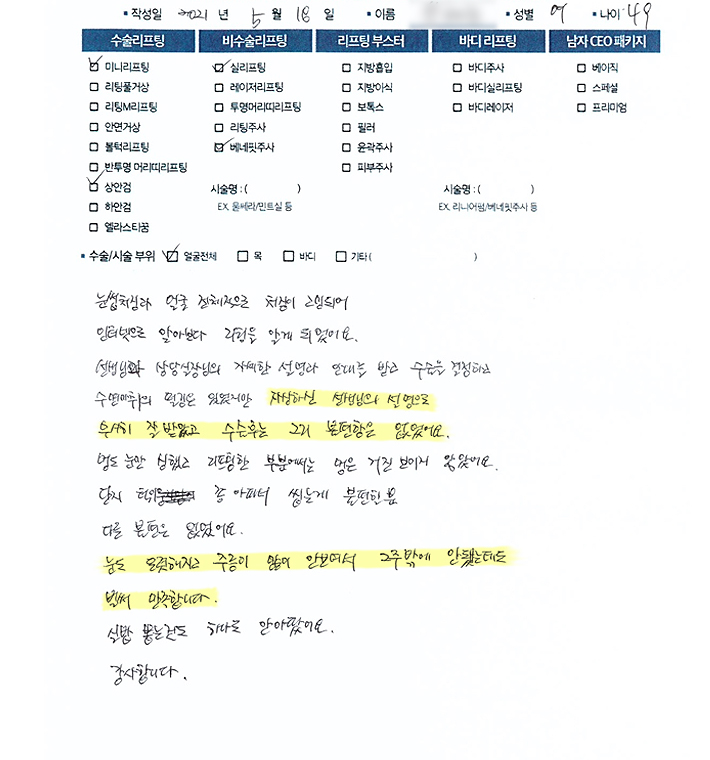 ▪ 작성일 2021 년 5 월 18 일 ▪ 이름 ▪ 성별 여 ▪ 나이 49
수술리프팅 비수술리프팅 리프팅 부스터 바디 리프팅 남자 CEO 패키지
미니리프팅 실리프팅 지방흡입 바디주사 베이직
리팅풀거상 레이저리프팅 지방이식 바디실리프팅 스페셜
리팅M리프팅 투명머리띠리프팅 보톡스 바디레이저 프리미엄
안면거상 리팅주사 필러
볼턱리프팅 베네핏주사 윤곽주사
반투명 머리띠리프팅 피부주사
상안검 시술명 : ( ) 시술명 : ( )
하안검 EX. 울쎄라/민트실 등 EX. 리니어펌/베네핏주사 등
엘라스타꿈
▪ 수술/시술 부위 얼굴전체 목 바디 기타 ( )
눈썹처짐과 얼굴 전체적으로 처짐이 고민되어
인터넷으로 알아보다 리팅을 알게 되었어요.
선생님과 상담실장님의 자세한 설명과 안내를 받고 수술을 결정하고
수면마취의 떨림은 있었지만 자상하신 선생님의 설명으로
무사히 잘 받았고 수술후는 그리 불편함은 없었어요.
멍도 눈만 심했고 리프팅한 부분에서는 멍은 거진 보이지 않았어요.
단지 턱위 좀 아파서 씹는게 불편한 뿐
다른 불편은 없었어요.
눈도 또렷해지고 주름이 많이 안보여서 2주밖에 안됐는데도
벌써 만족합니다.
실밥 뽑는것도 하나도 안아팠어요.
감사합니다.